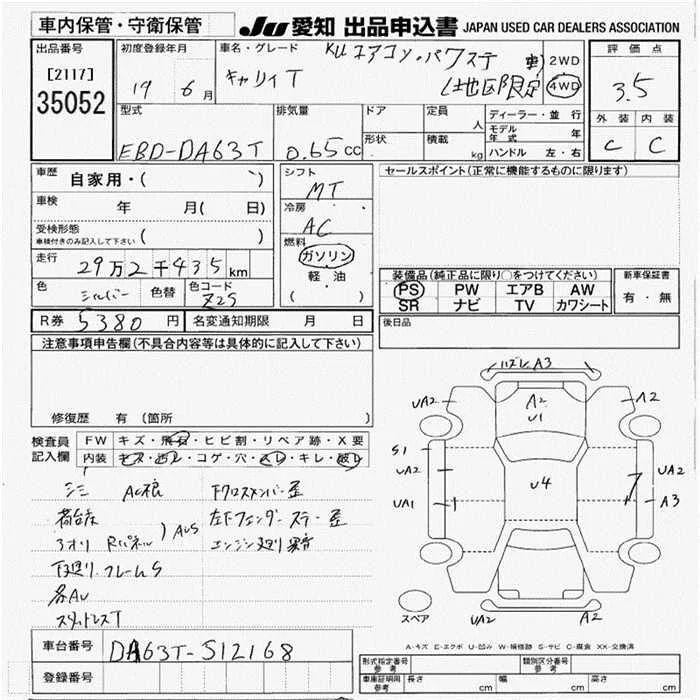 車内保管・守衛保管 JU 愛知 出品申込書 JAPAN USED CAR DEALERS ASSOCIATION
出品番号 初度登録年月 車名・グレード KU エアコン・パワステ 2WD 評価点
[2117] 19 6月 キャリイT 4WD 3.5
35052 外装 内装
型式 排気量 ドア 定員 人 ディーラー・並行 C C
EBD-DA63T 0.65CC 形状 積載 kg モデル年式 年
ハンドル 左・右
車歴 自家用・( ) シフト MT セールスポイント(正常に機能するものに限ります)
車検 年 月( 日) 冷房 AC
受検形態 車検付きのみ記入して下さい ( ) 燃料 ガソリン
走行 29万2千435km 軽油
色 シルバー 色替 色コード Z2S ( )
装備品(純正品に限り○をつけてください) 新車保証書
PS PW エアB AW 有・無
SR ナビ TV カワシート
R券 5380円 名変通知期限 月 日 後日品
注意事項申告欄(不具合内容等は具体的に記入して下さい)
修復歴 有(箇所
ハズレ A3
UA2 A2 U1 A2
S1 UA2 U4 UA2
UA1 A3
UA2 A2
スペア
検査員記入欄 FW キズ・飛石・ヒビ割・リペア跡・X要
内装 キズ・汚レ・コゲ・穴・スレ・キレ・破レ
シミ AC根 下クロスメンバー歪
荷台床 左下フェンダーステー歪
アオリ Rパネル ) AUS エンジン廻り異音
下廻り.フレームS
各AU
スタッドレスT
A-キズ E-エクボ U-凹み W-補修跡 S-サビ C-腐食 XX-交換済
車台番号 DA63T-512168
登録番号
形式指定番号 参考 類別区分番号 参考
車庫証明用 参考 長さ cm 幅 cm 高さ cm